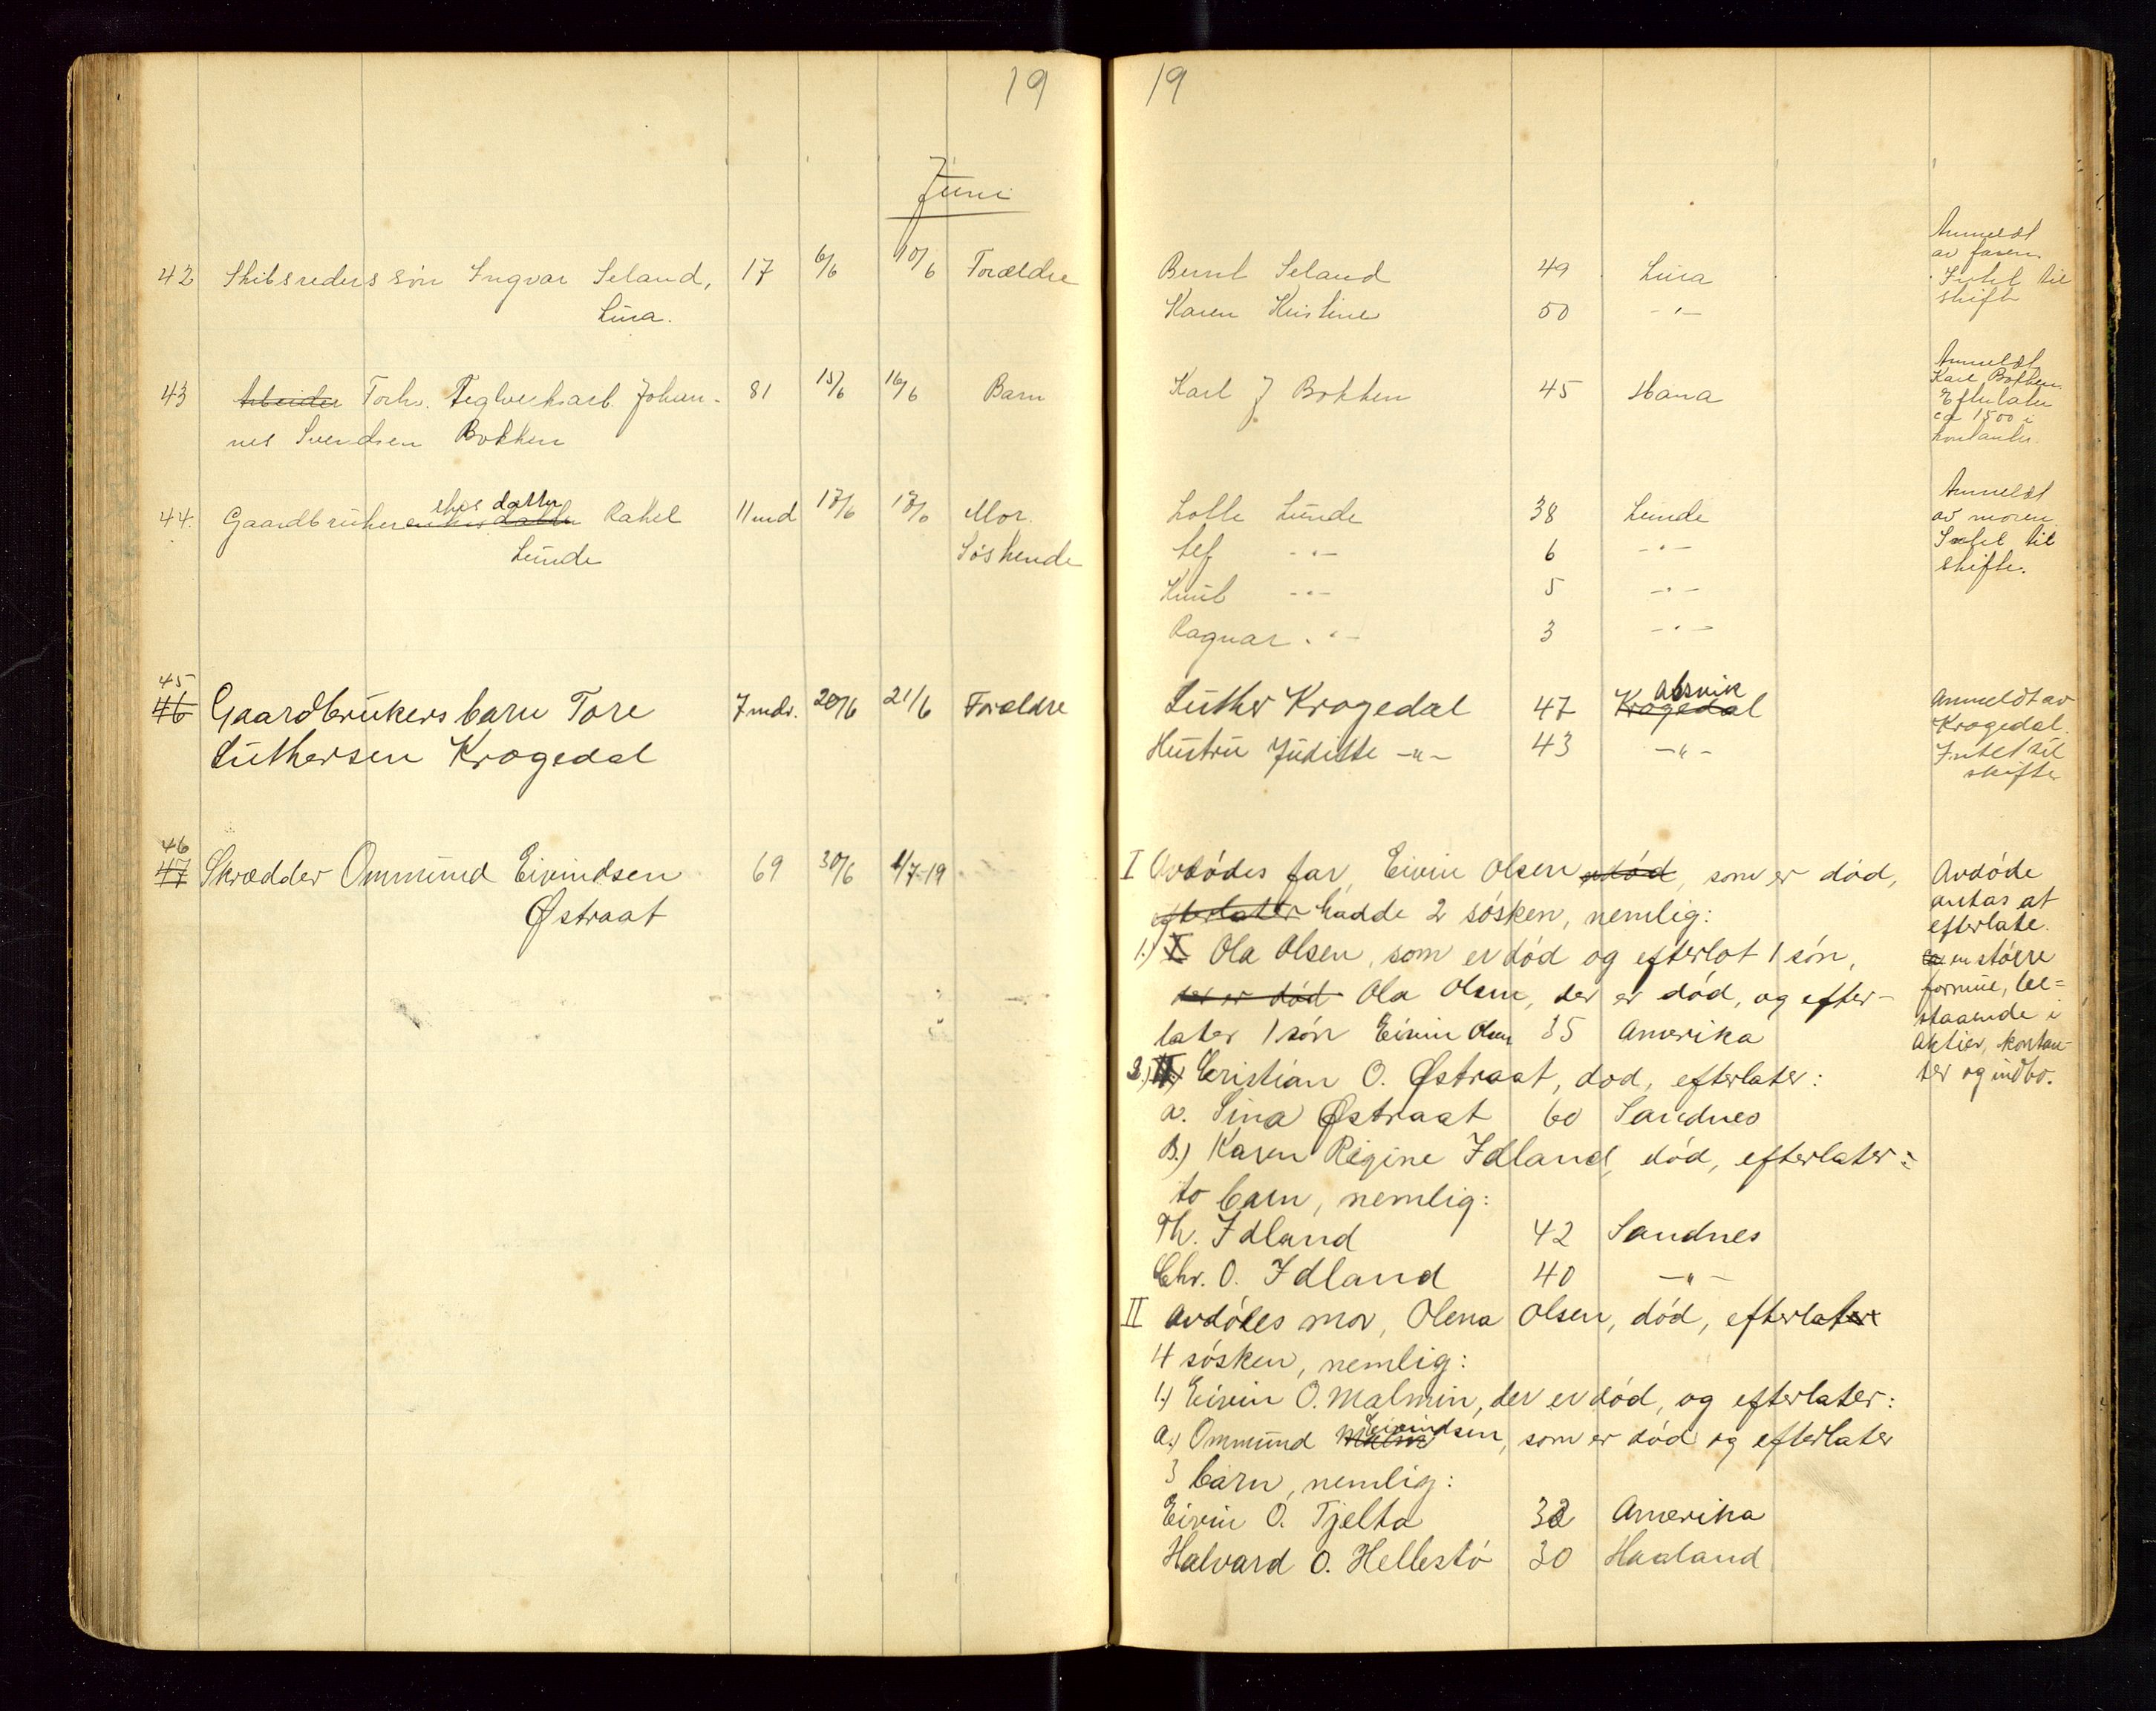 19
Juni
42 Skibsreders søn Ingvar Seland, 17 6/6 10/6 Forældre
Lura.
43 Arbeider Forh. Teglverksarb. Johan- 81 15/6 16/6 Barn
nes Svendsen Bokken
ekes datter
44. Gaardbruker Rakel 11 md 17/6 17/6 Mor.
Lunde Søskende
45
46 Gaardbrukers barn Tore 7 mdr. 20/6 21/6 Forældre
Luthersen Krogedal
46
47 Skrædder Ommund Eivindsen 69 30/6 1/7-19
Østraat
19
Bernt Seland 49 Lura
Karen Kristine 50 -"-
Anmeldt
av faren.
Intet til
skifte
Karl J Bokken 45 Hana
Anmeldt
Karl Bokken.
Efterlater
ca 1500 i
kontanter.
Lotte Lunde 38 Lunde
Lef -"- 6 -"-
Knut -"- 5 -"-
Ragnar -"- 3 -"-
Anmeldt
av moren
Intet til
skifte.
Alsvik
Luther Krogedal 47 Krogedal
Hustru Juditte -"- 43 -"-
Anmeldt av
Krogedal.
Intet til
skifte
I Avdødes far, Eivin Olsen død, som er død,
efterlater hadde 2 søsken, nemlig:
1.) I Ola Olsen, som er død og efterlot 1 søn,
der er død Ola Olsen, der er død, og efter-
later 1 søn Eivin Olsen 35 Amerika
2.) II) Cristian O. Østraat, død, efterlater:
a. Sina Østraat 60 Sandnes
B.) Karen Regine Idland, død, efterlater:
to barn, nemlig:
Th. Idland 42 Sandnes
Chr. O. Idland 40 -"-
II Avdødes mor, Olena Olsen, død, efterlater
4 søsken, nemlig:
1.) Eivin O. Malmin, der er død, og efterlater:
Eivindsen
a.) Ommund Malm, som er død og efterlater
3 barn, nemlig:
Eivin O. Tjelta 32 Amerika
Halvard O. Hellestø 30 Haaland
Avdøde
antas at
efterlate
en større
formue, be=
staaende i
Aktier, kontan-
ter og indbo.